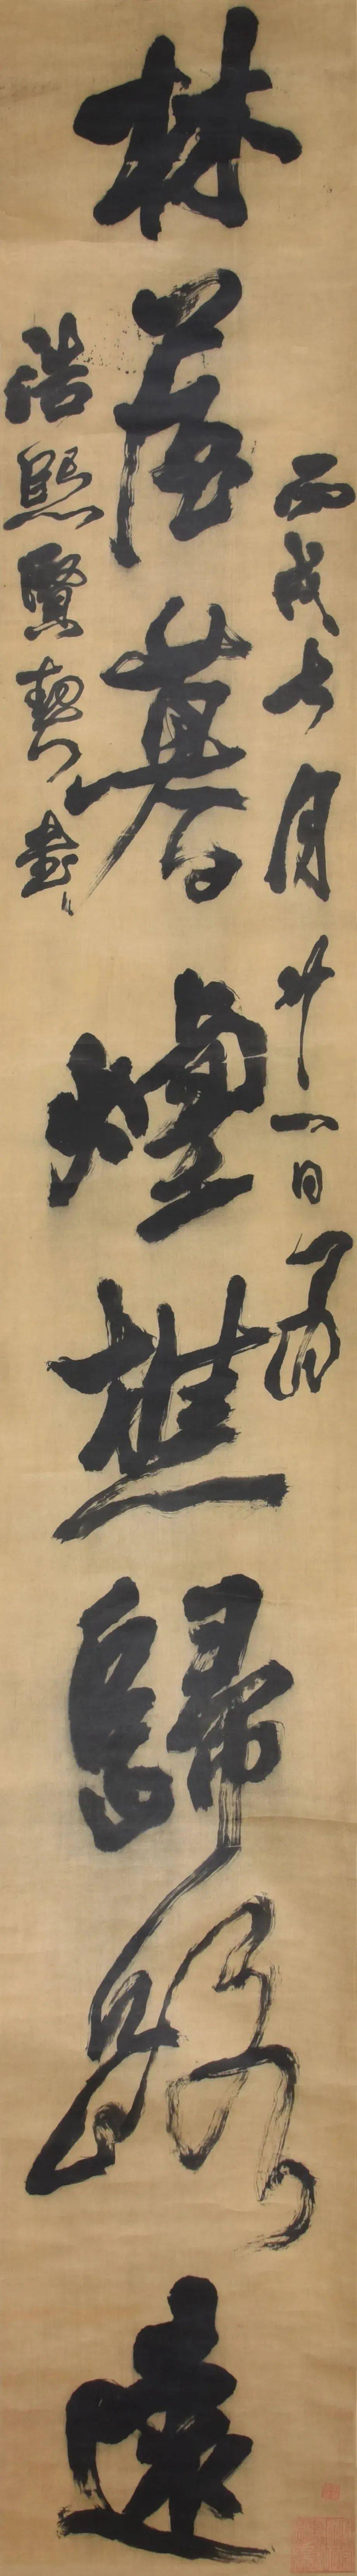 丙戌七月廿一日為
林蒼暮煙樵歸路遠
浩熙賢契書